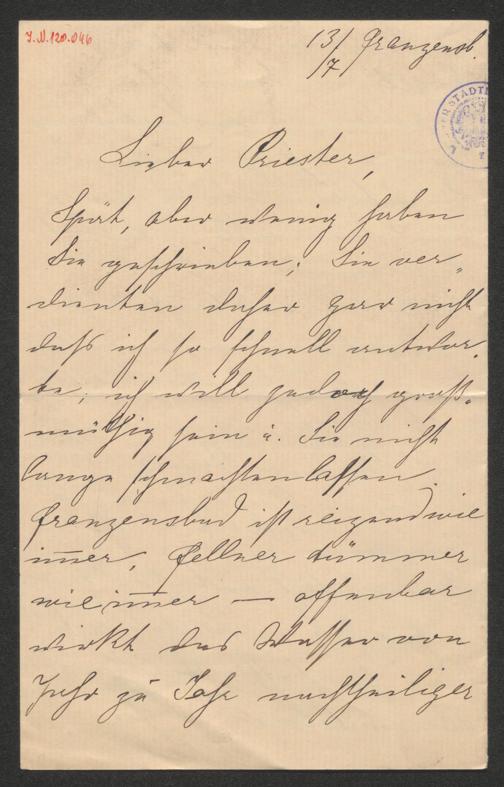 J.N.120.046
13/7 Franzensb.
Lieber Priester,
Spät, aber wenig haben
Sie geschrieben; Sie ver-
dienten daher gar nicht
daß ich so schnell antwor-
te; ich will jedoch groß-
müthig sein u. Sie nicht
lange schmachten lassen.
Franzensbad ist reizend wie
immer, Fellner dümmer
wie immer — offenbar
wirkt das Wasser von
Jahr zu Jahr nachtheiliger